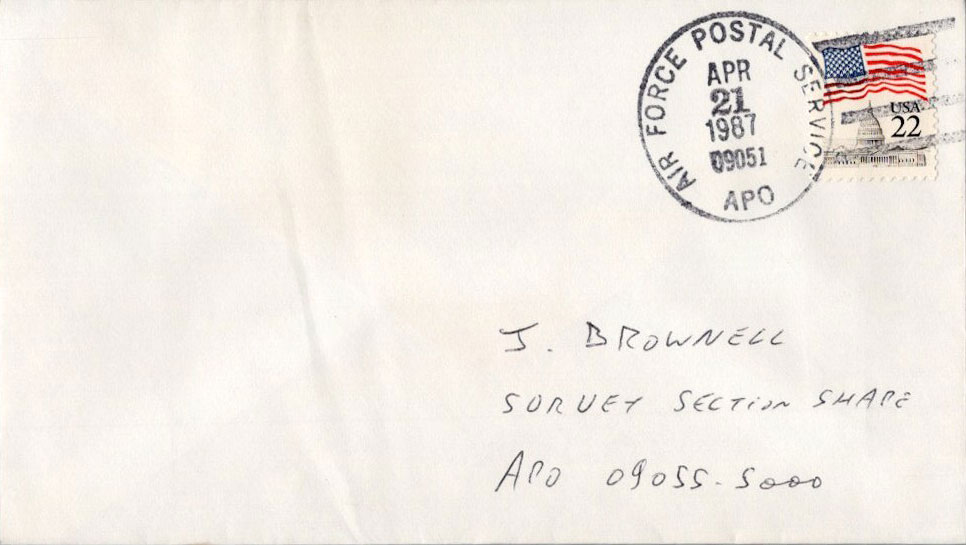 AIR FORCE POSTAL SERVICE
APR
21
1987
09051
APO
USA
22
J. BROWNELL
SURVEY SECTION SHAPE
APO 09055-5000